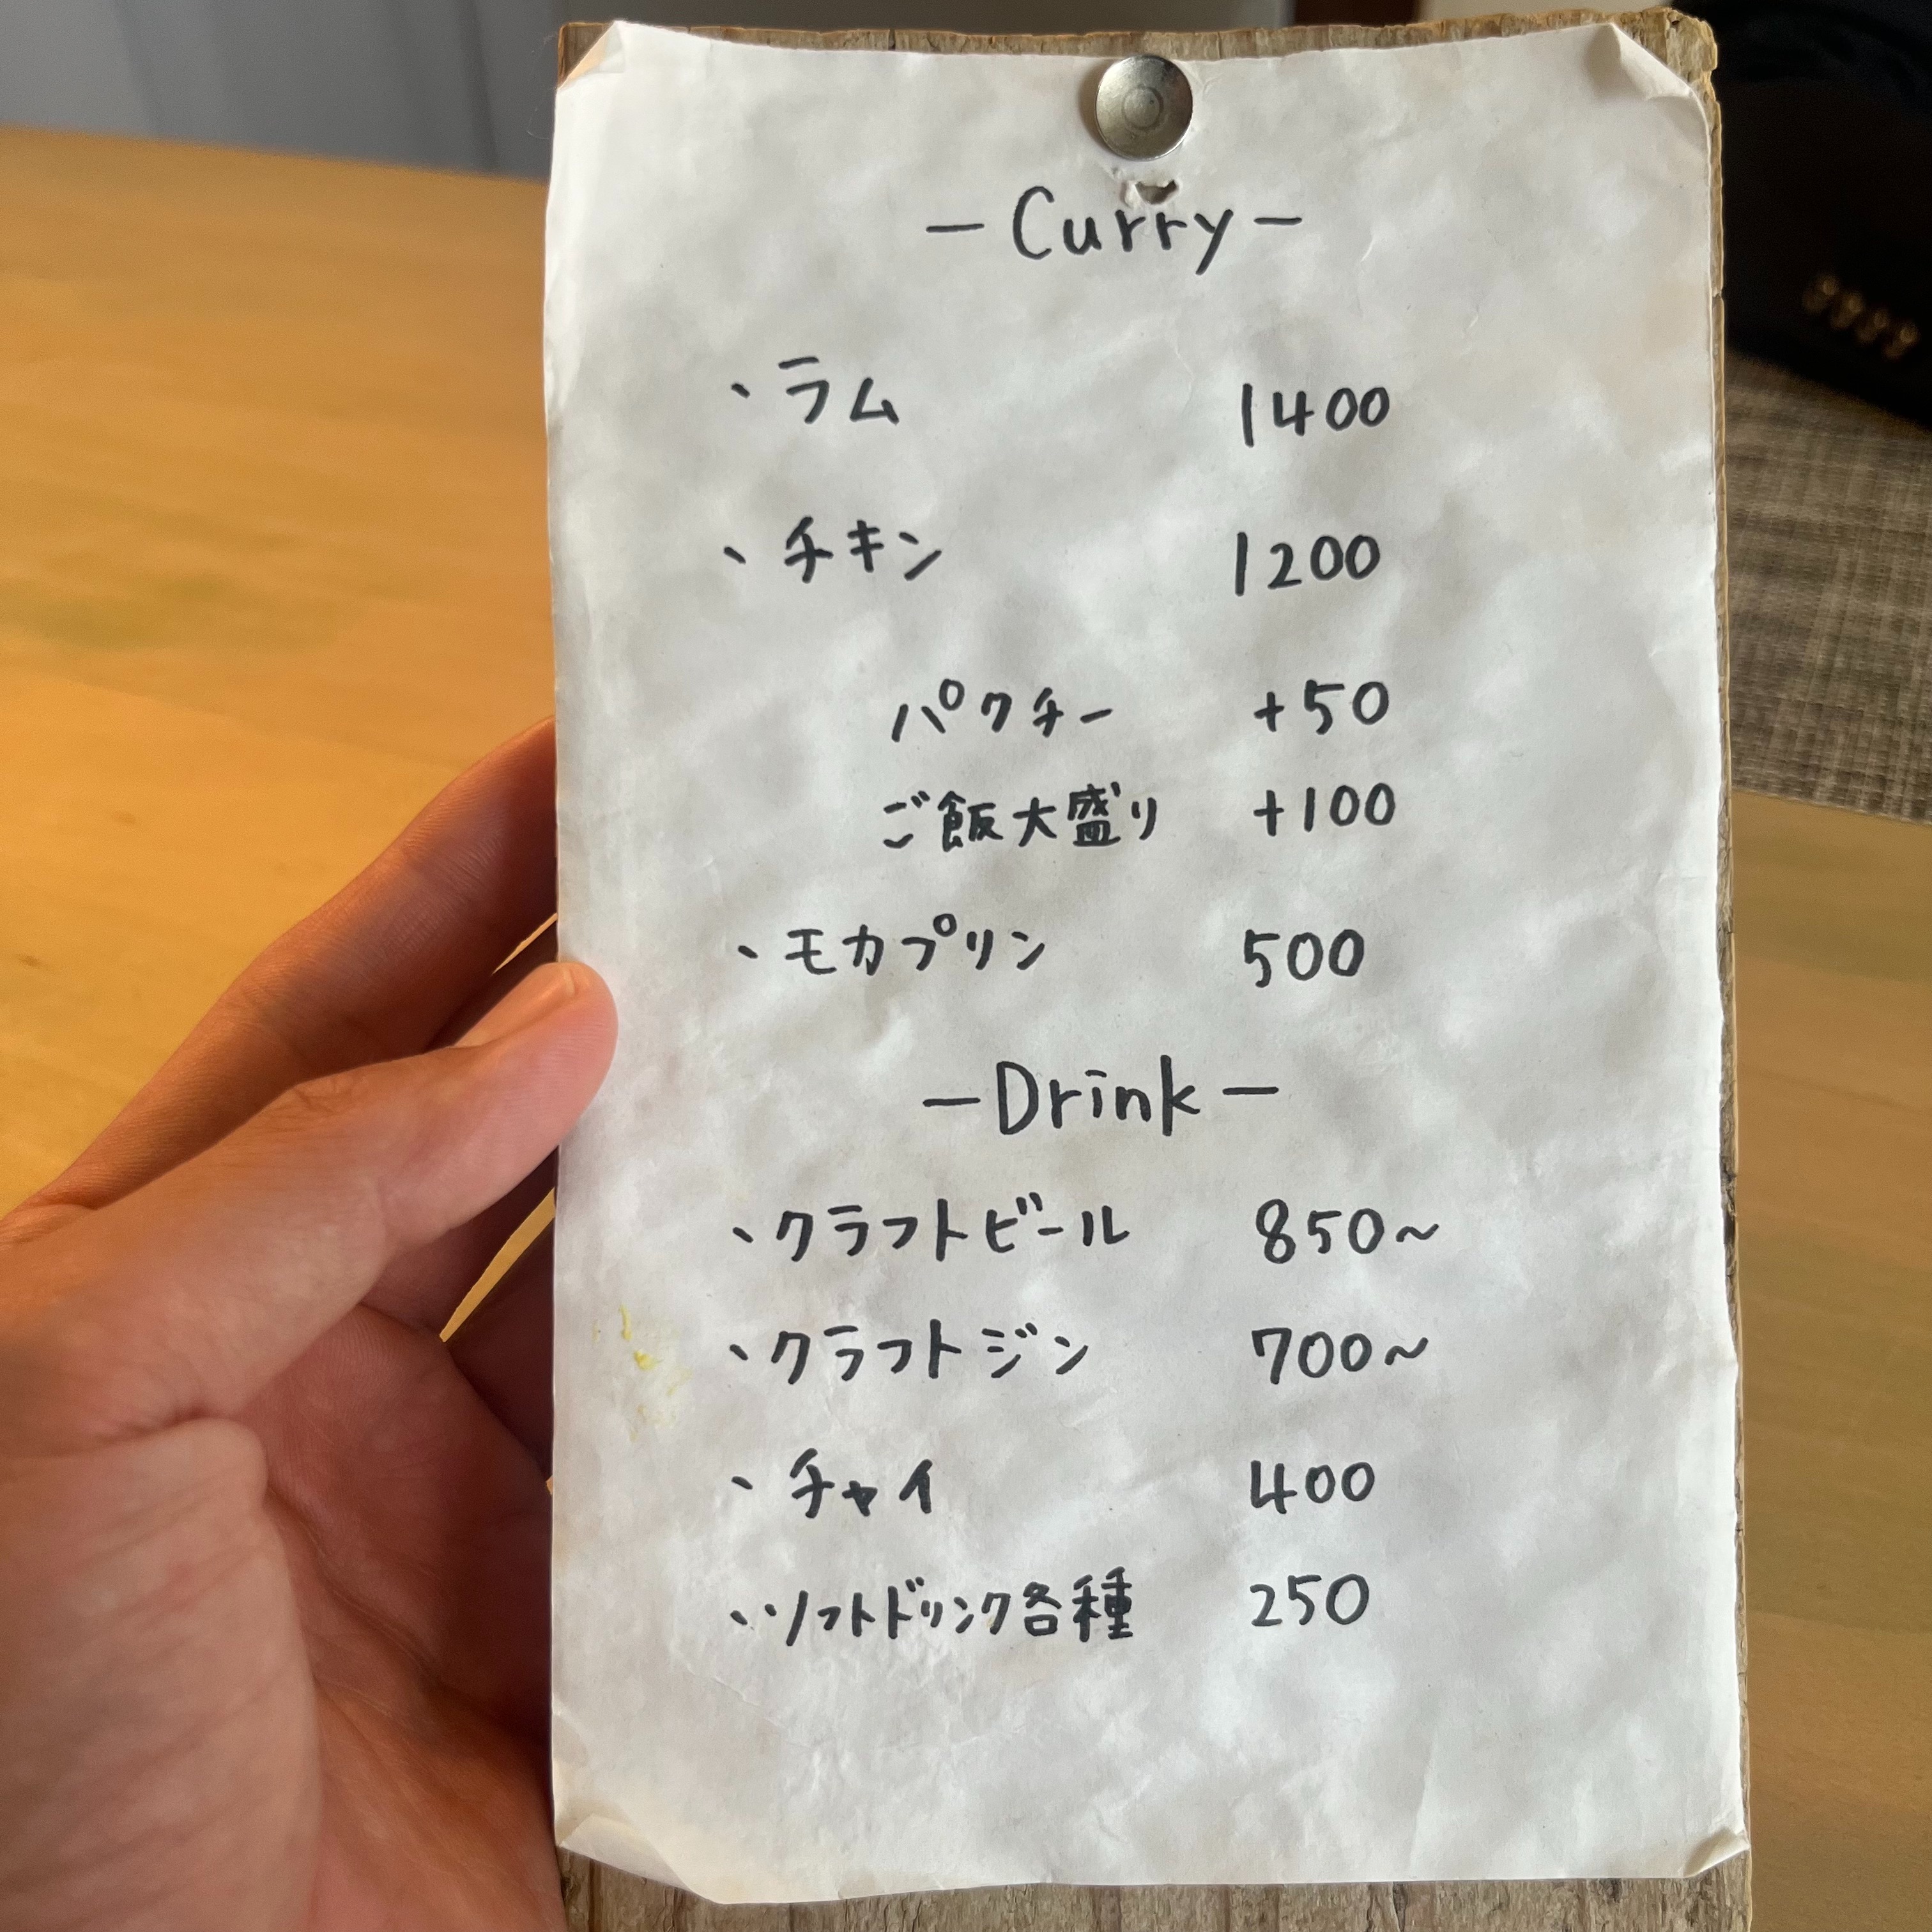 －Curry－
、ラム 1400
、チキン 1200
パクチー +50
ご飯大盛り +100
、モカプリン 500
－Drink－
、クラフトビール 850～
、クラフトジン 700～
、チャイ 400
、ソフトドリンク各種 250